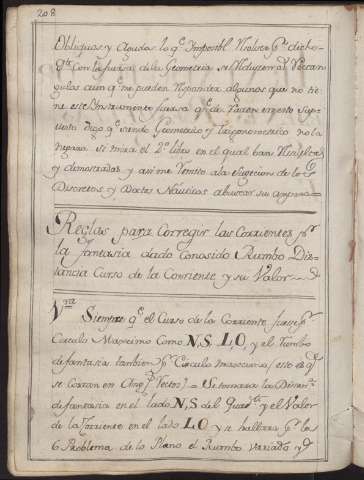 208
Obliquas y Agudas lo q.e Imposibl. Resolver p.r dicho
q.te con la fuerza de la Geometria se Reduzcan a Rectan
gulos aun q.e me pueden Responder algunos que no tie
ne este Instrumento fuerza
puesto digo q.e siendo Geometrico y Trigonometrico no la
negara si mira el 2.o libro en el qual ban Resueltos
y demostrados y asi me Remito a la sugecion de los
Discretos y Doctos Nauticos a buscar su
Reglas para Corregir las Corrientes p.r
la fantasia dado Conosido Rumbo Dis
tancia Curso de la Corriente y su Valor
V.na Siempre q.e el Curso de la Corriente fuese p.r
Circulo Maximo como N,S. L,O, y el Rumbo
de fantasia tambien p.r Circulo maximo, esto es q.e
se Cortan en Ang.s Rectos = Se tomara la Distan.a
de fantasia en el lado N,S del Quad.te y el Valor
de la Corriente en el lado LO y se hallara p.r los
6 Problema de lo Plano el Rumbo Variado y